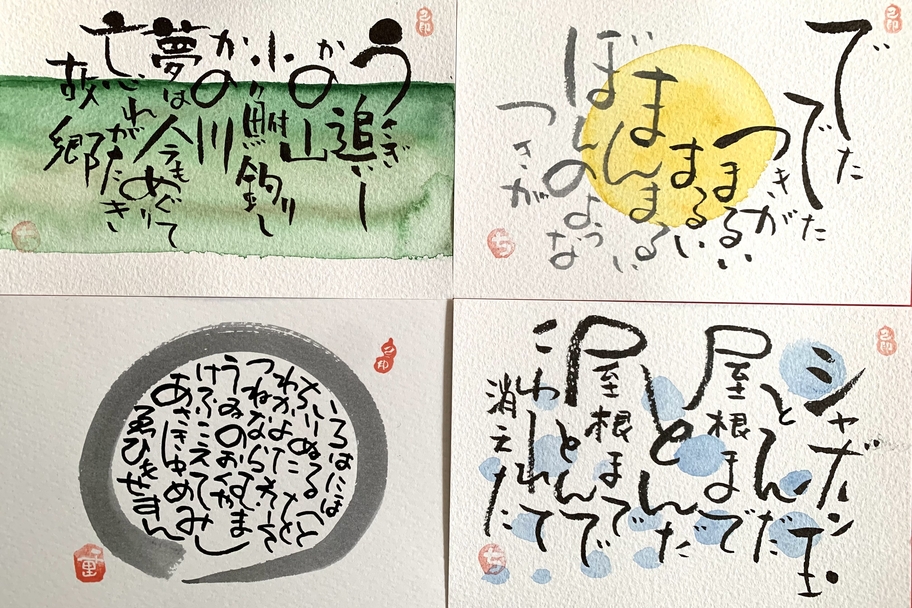 うさぎ追いし
かの山
小鮒釣りし
かの川
夢は今もめぐりて
忘れがたき
故郷
でた
でた
つきが
まるい
まるい
まんまるい
ぼんのような
つきが
ち
いろはにほへと
ちりぬるを
わかよたれそ
つねならむ
うゐのおくやま
けふこえて
あさきゆめみし
ゑひもせすん
シャボン玉
とんだ
屋根まで
とんだ
屋根まで
とんで
こわれて
消えた
ち